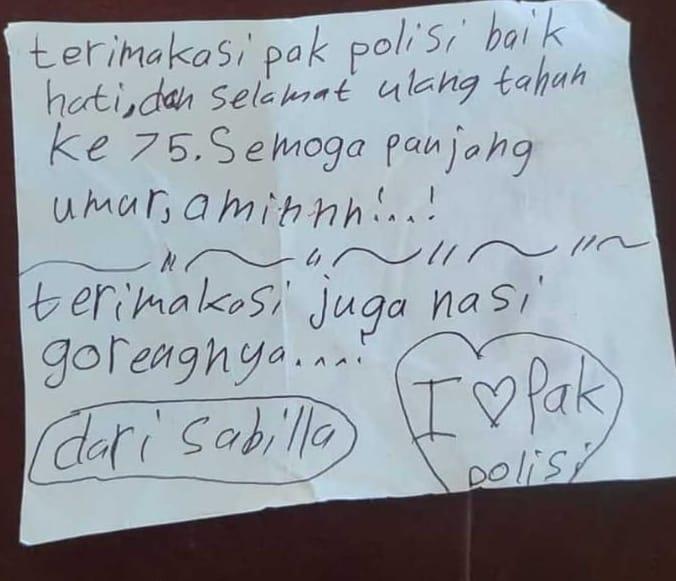 terimakasi pak polisi baik
hati, dan selamat ulang tahun
ke 75. Semoga panjang
umur, aminnnn!..!
terimakasi juga nasi
gorengnya....!
dari sabilla
I ♡ Pak
polisi